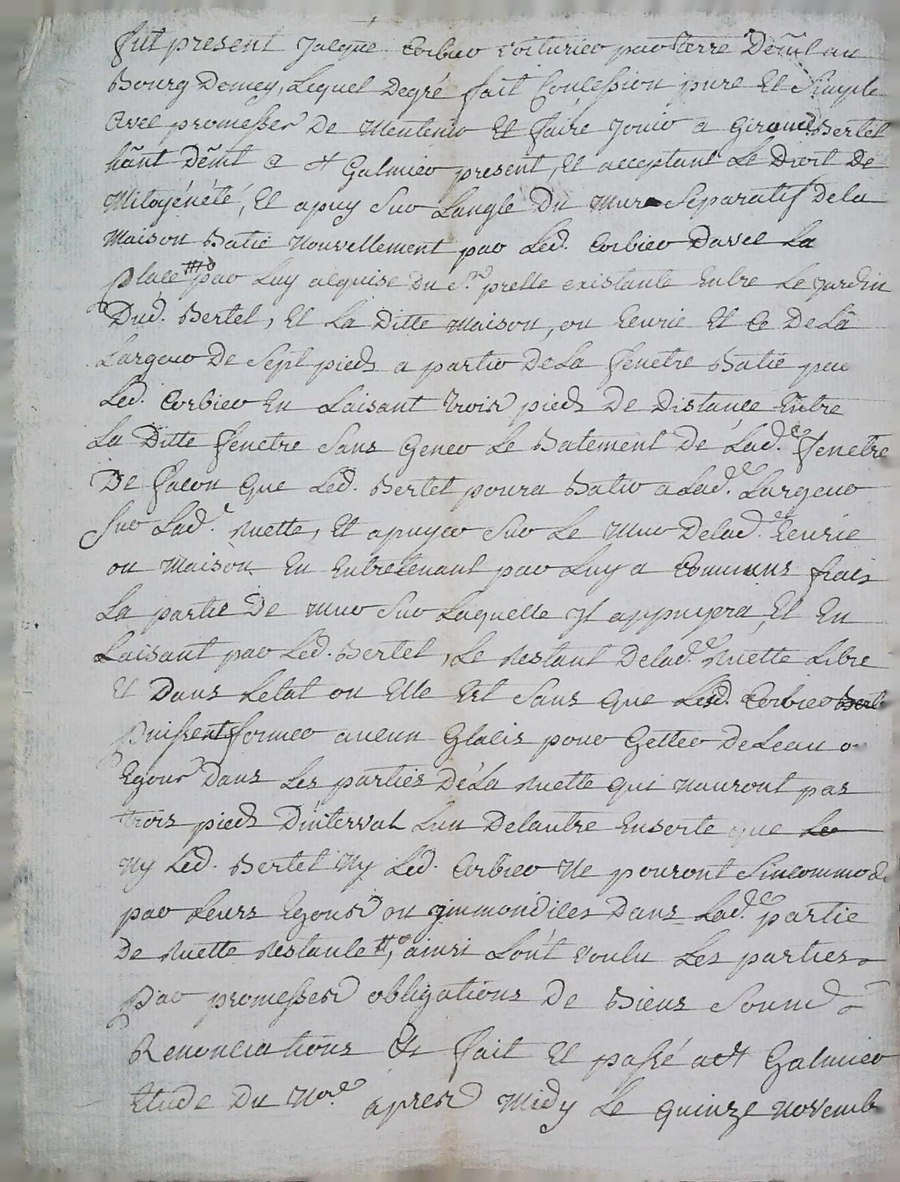 fut present Jacque Corbier voiturier par terre Demt au
Bourg Demey, Lequel Degré fait Concession pure Et Simple
avec promesses De Mentenir Et faire Jouir a Giraud Bertet
hant Demt a st Galmier present, Et acceptant Le Droit De
Mitoyéneté, Et apuy Sur Langle Du mur Separatif Dela
Maison Batie Nouvellement par Led. Corbier Davec La
place par Luy acquise Du sr. prelle existante Entre Le jardin
Dud. Bertet, Et La Ditte maison, ou Ecurie Et Ce De La
Largeur De Sept pieds a partir De La fenetre Batie par
Led. Corbier En Laisant trois pieds De Distance Entre
La Ditte fenetre Sans Gener Le Batement De Lad.e fenetre
De facon que Led. Bertet poura Batir a Lad.e Largeur
Sur Lad.e Ruette, Et apuyer Sur Le Mur Delad.e Ecurie
ou Maison En Entretenant par Luy a Communs frais
La partie De mur Sur Laquelle Il appuyera, Et En
Laisant par Led. Bertet, Le Restant Delad.e Ruette Libre
Et Dans Letat ou Elle Est Sans que Lesd. Corbier Bertet
puissent former aucun Glacis pour Getter De Leau o
Egous Dans Les parties De La Ruette qui Nauront pas
trois pieds Dinterval Lun Delautre Ensorte que Le
Ny Led. Bertet Ny Led. Corbier Ne pouront Sincommod
par Leurs Egous ou immondices Dans Lad.e partie
De Ruette Restante, ainsi Lont voulu Les parties
par promesses obligations De Biens Soumd
Renonciations &c fait Et passé a st Galmier
Etude Du Nore apres Midy Le quinze Novemb